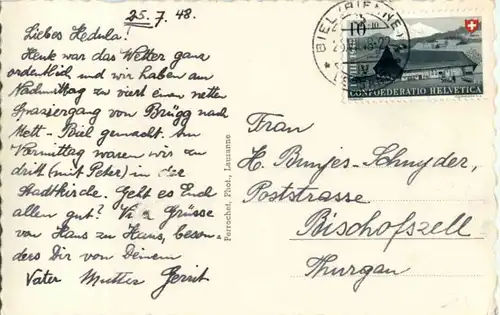 25. 7. 48.
Liebes Hedula!
Heute war das Wetter ganz
ordentlich und wir haben am
Nachmittag zu viert einen netten
Spaziergang von Brügg nach
Mett-Biel gemacht. Am
Vormittag waren wir zu
dritt (mit Peter) in der
Stadtkirche. Geht es Euch
allen gut? Viele Grüsse
von Haus zu Haus, beson-
ders Dir von Deinem
Vater Mutter Gerrit
Perrochet, Phot., Lausanne
BIEL (BIENNE)
10
CONFOEDERATIO HELVETICA
Frau
H. Bunjes-Schnyder,
Poststrasse
Bischofszell
Thurgau